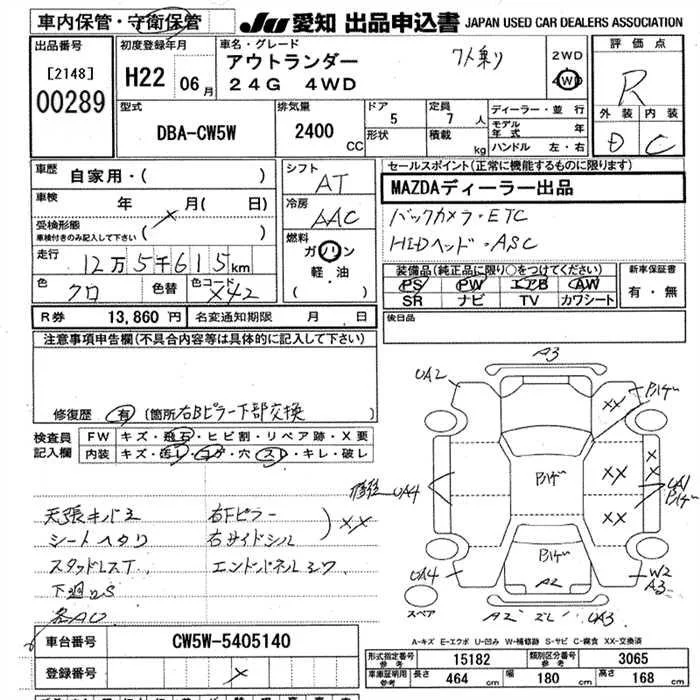 車内保管・守衛保管
JU 愛知 出品申込書 JAPAN USED CAR DEALERS ASSOCIATION
出品番号 初度登録年月 車名・グレード 評価点
[2148] 00289 H22 06月 アウトランダー 7人乗り 2WD R
24G 4WD 4WD
外装 内装
型式 排気量 ドア 定員 ディーラー・並行
DBA-CW5W 2400 CC 5 7人 モデル年式 年 D C
形状 積載 kg ハンドル 左・右
車歴 自家用・( ) シフト AT セールスポイント(正常に機能するものに限ります)
MAZDAディーラー出品
車検 年 月( 日) 冷房 AAC
受検形態 車検付きのみ記入して下さい ( ) バックカメラ・ETC
燃料 ガソリン 軽・油 ( ) HIDヘッド・ASC
走行 12万5千615km
装備品(純正品に限り○をつけてください) 新車保証書
色 クロ 色替 色コード X42 PS PW エアB AW 有・無
SR ナビ TV カワシート
R券 13,860円 名変通知期限 月 日 後日品
注意事項申告欄(不具合内容等は具体的に記入して下さい)
修復歴 有 [箇所 右Bピラー下部交換
検査員記入欄 FW キズ・飛石・ヒビ割・リペア跡・X要
内装 キズ・汚レ・コゲ・穴・スレ・キレ・破レ
A3
UA2
XX
XX
XX
UA4
UA1
UA4
W2
A3
A2
A2
UA3
右Fピラー
シートヘタリ 右サイドシル XX
スタッドレスT.
スペア
A-キズ E-エクボ U-凹み W-補修跡 S-サビ C-腐食 XX-交換済
車台番号 CW5W-5405140
登録番号
形式指定番号 参考 15182 類別区分番号 参考 3065
車庫証明用 参考 長さ 464 cm 幅 180 cm 高さ 168 cm